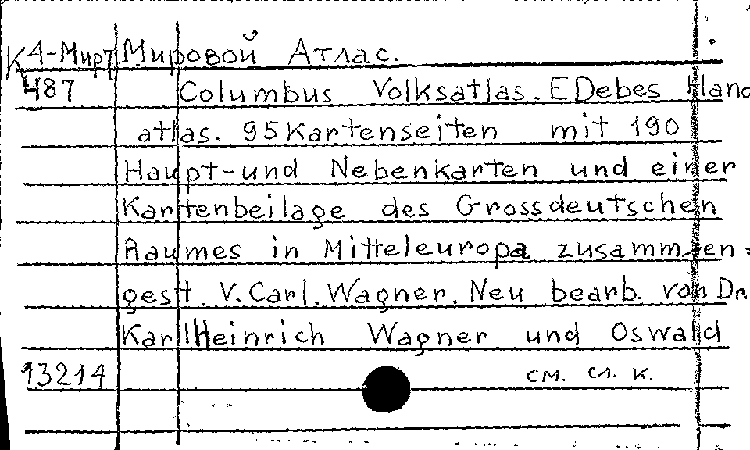 К4-Мирт Мировой Атлас.
487 Columbus Volksatlas. E Debes Hand
atlas. 95 Kartenseiten mit 190
Haupt-und Nebenkarten und einer
Kartenbeilage des Grossdeutschen
Raumes in Mitteleuropa zusammen=
gest. V. Carl. Wagner. Neu bearb. von Dr.
Karl Heinrich Wagner und Oswald
13214 см. сл. к.